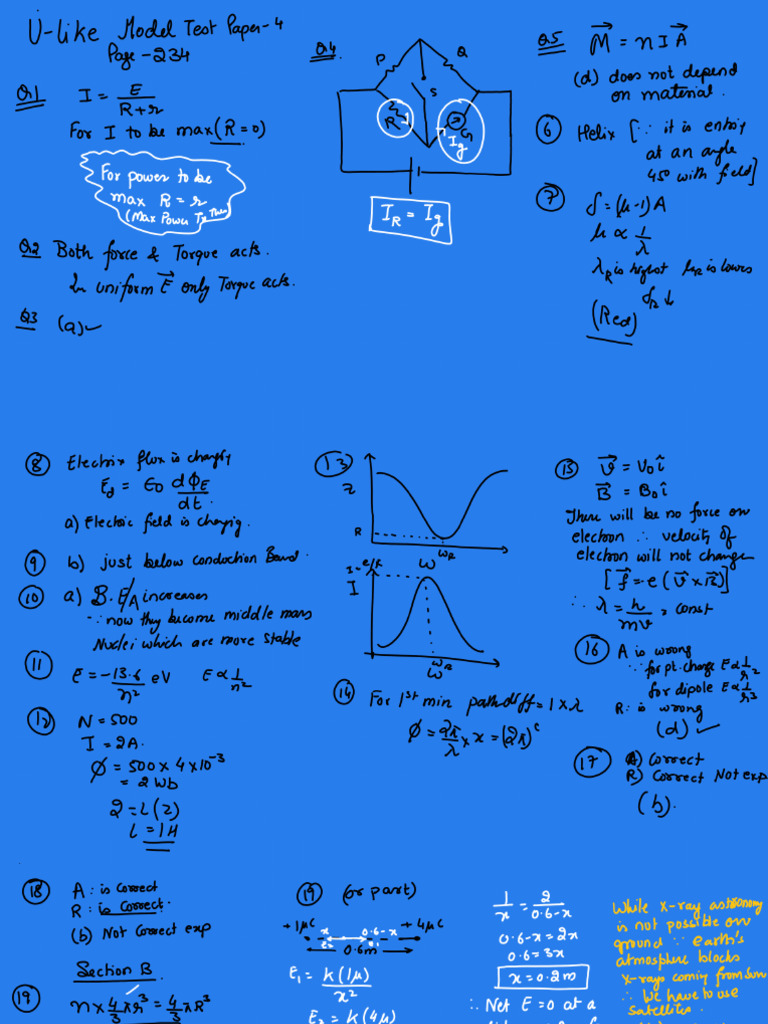 U-like Model Test Paper-4
Page-234
Q1 I = E / R+r
For I to be max (R=0)
For power to be
max R = r
(Max Power
Q2 Both force & Torque acts.
In uniform E⃗ only Torque acts.
Q3 (a)✓
Q4
P
Q
S
R
G
Ig
I_R = Ig
Q5 M⃗ = n I A⃗
(d) does not depend
on material.
6 Helix [∵ it is entry
at an angle
45° with field]
7 δ = (μ-1) A
μ ∝ 1/λ
λ_R is highest μ_R is lowes
δ_R ↓
(Red)
8 Electric flux is changing
I_d = ε0 dΦ_E/dt.
a) Electric field is changing.
9 b) just below conduction Band.
10 a) B.E/A increases
∵ now they become middle mass
Nuclei which are more stable
11 E = -13.6/n² eV E ∝ 1/n²
12 N = 500
I = 2A.
Φ = 500 × 4 × 10⁻³
= 2 Wb
2 = L(2)
L = 1H
13
Z
R
ω_R
ω
I
ω_R
ω
14 For 1st min path diff = 1 × λ
φ = 2π/λ × x = (2π)ᶜ
15 v⃗ = V₀ î
B⃗ = B₀ î
There will be no force on
electron ∴ velocity of
electron will not change
[f⃗ = e (v⃗ × B⃗)]
∴ λ = h/mv = const
16 A is wrong
∵ for pt. charge E ∝ 1/r²
for dipole E ∝ 1/r³
R: is wrong
(d) ✓
17 A) Correct
R) Correct Not exp
(b).
18 A: is Correct
R: is Correct.
(b) Not Correct exp
Section B
19 n × 4/3 πr³ = 4/3 πR³
19 (or part)
+1μC x 0.6-x +4μC
0.6m
E₁ = k(1μ)/x²
E₂ = k(4μ)
1/x = 2/0.6-x
0.6-x = 2x
0.6 = 3x
x = 0.2m
∴ Net E = 0 at a
While x-ray astronomy
is not possible on
ground ∵ earth's
atmosphere blocks
x-rays coming from Sun
∴ We have to use
satellites.